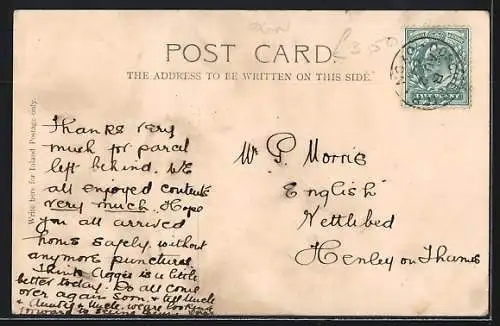 £3.50
POST CARD.
THE ADDRESS TO BE WRITTEN ON THIS SIDE.
HALFPENNY
Write here for Inland Postage only.
Thanks very
much for parcel
left behind. We
all enjoyed contents
very much. Hope
you all arrived
home safely without
anymore punctures.
Think Aggie is a little
better today. Do all come
over again soon, & tell Uncle
& Aunty & Uncle we are looking
forward to seeing them
Mr P. Morris
English
Nettlebed
Henley on Thames